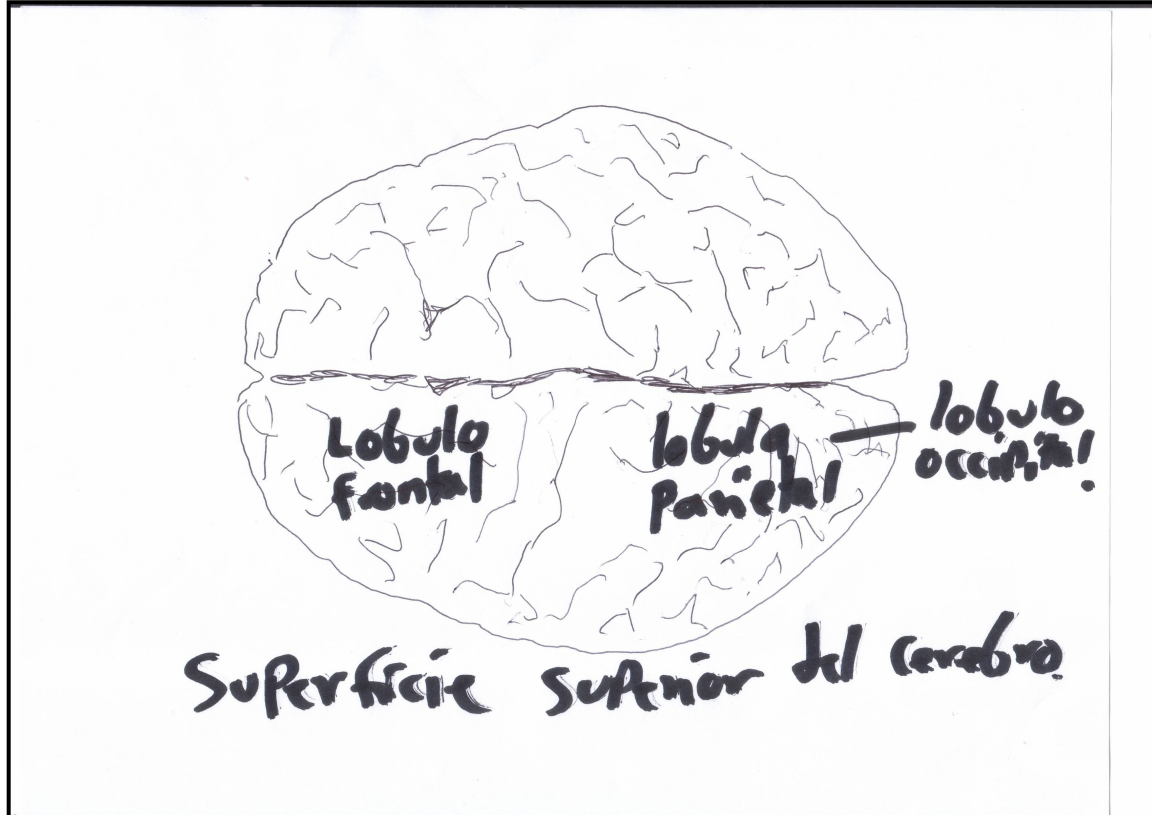 Lobulo
frontal
lobula
Parietal
lobulo
occipital.
Superficie superior del cerebro.